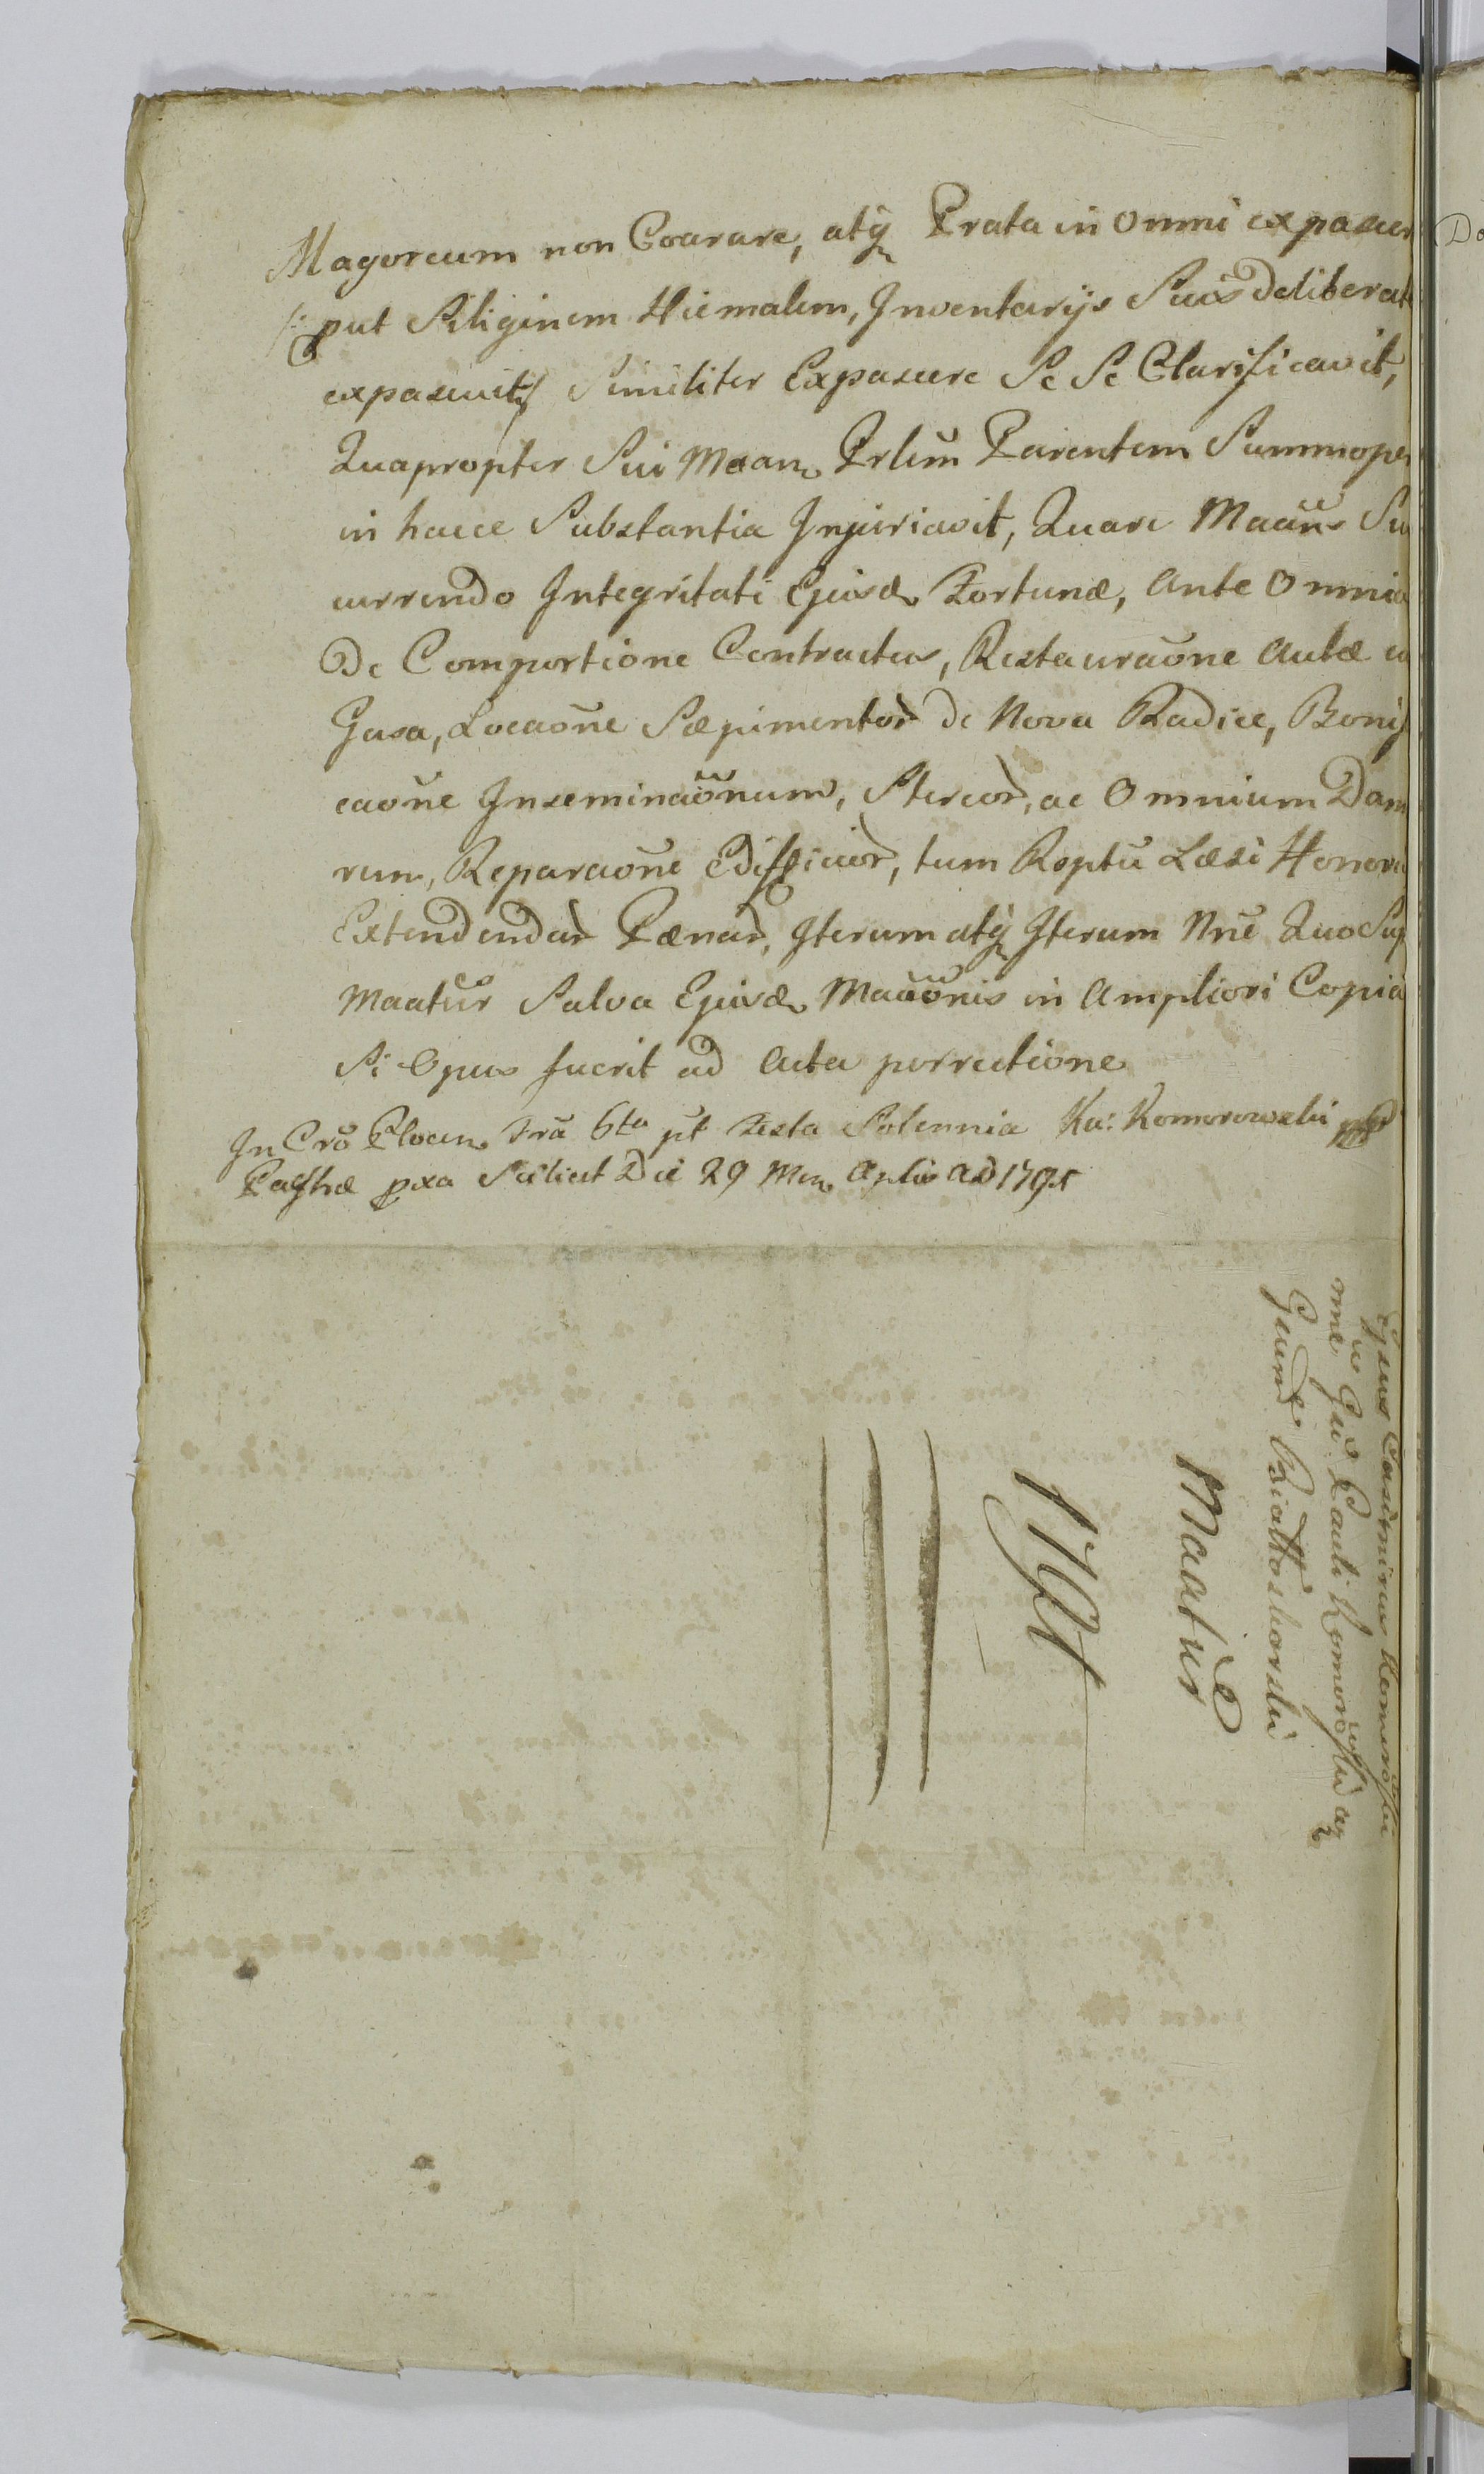 Magoreum non Coarare, atq̃ Prata in Omni expascer
/: put Siliginem Hiemalem, Inventarijs Suis deliberat
expascuit :/ Similiter Expascere Se Se Clarificavit,
Quapropter Sui Maan Prlem Parentem Summoper
in hacce Substantia Injuriavit, Quare Maãns Su
currendo Integritati Ejusd Fortunæ, Ante Omnia
De Comportione Contractus, Restauraõne Aulæ
Gasa, Locaõne Sæpimentor de Nova Radice, Bonif
caõne Inseminaõnum, Stercor, ac Omnium Dam
rum, Reparaõne Edifficior, tum Rsptu Læsi Honoris
Extendendar Pænar, Iterum atq̃ Iterum Nñe Quo Sup
Maatur Salva Ejusd Maãonis in Ampliori Copia
Si Opus fuerit ad Acta porrectione
In Crõ Plocen Fra 6ta pt Festa Solennia Ka: Komorowski
Paschæ pxa Scilicet Die 29 Men Aplis AD 179
Gsus Casimirus Komorowski
nne Gsi Pauli Komorowski
Gsum Białłoskorski
Maatur